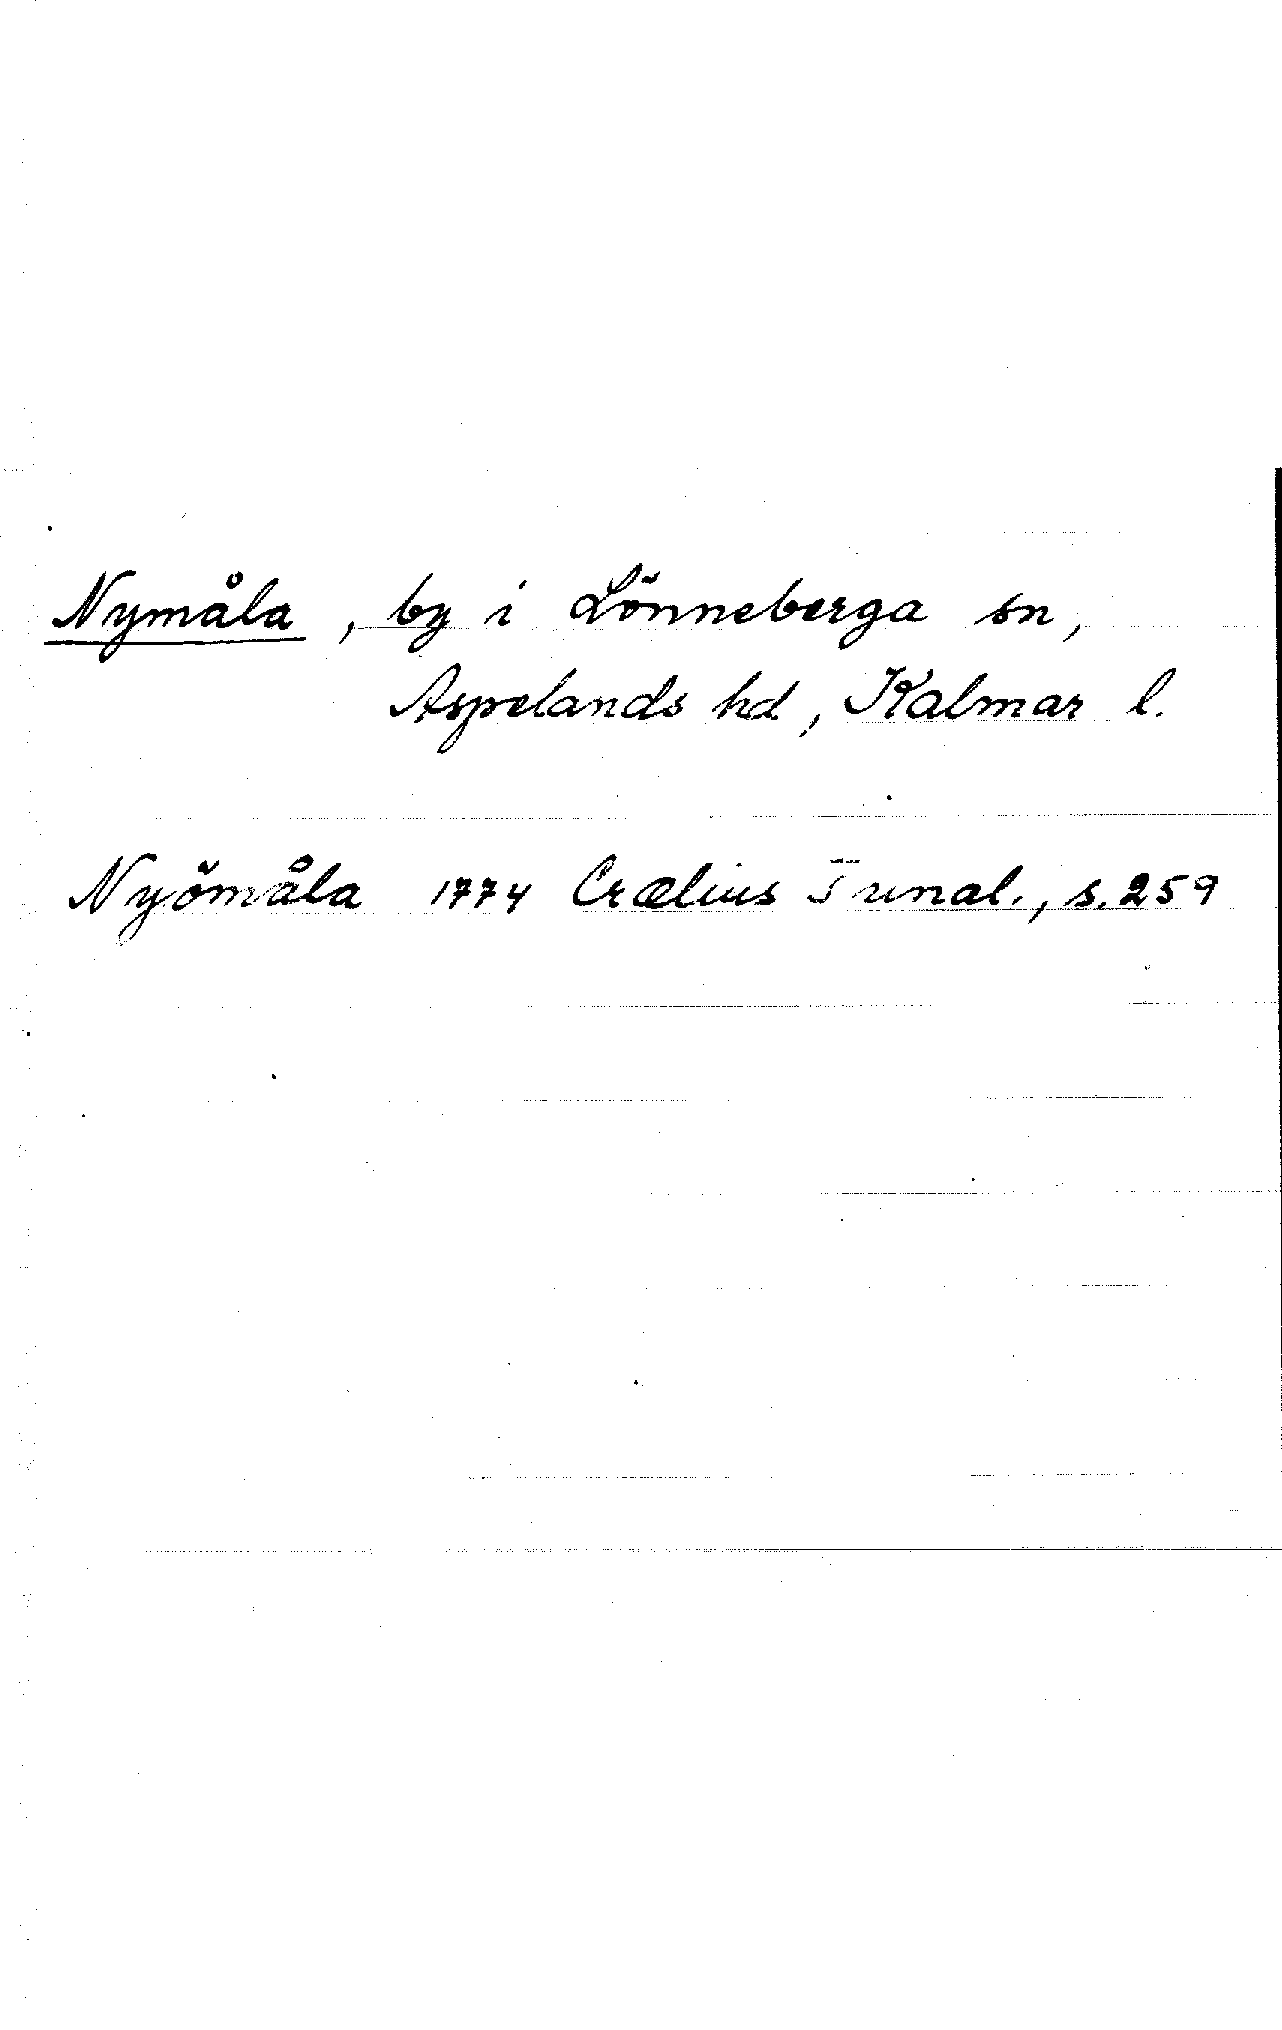 Nymåla, by i Lönneberga sn,
Aspelands hd, Kalmar l.
Nyömåla 1774 Crælius Tunal., s. 259